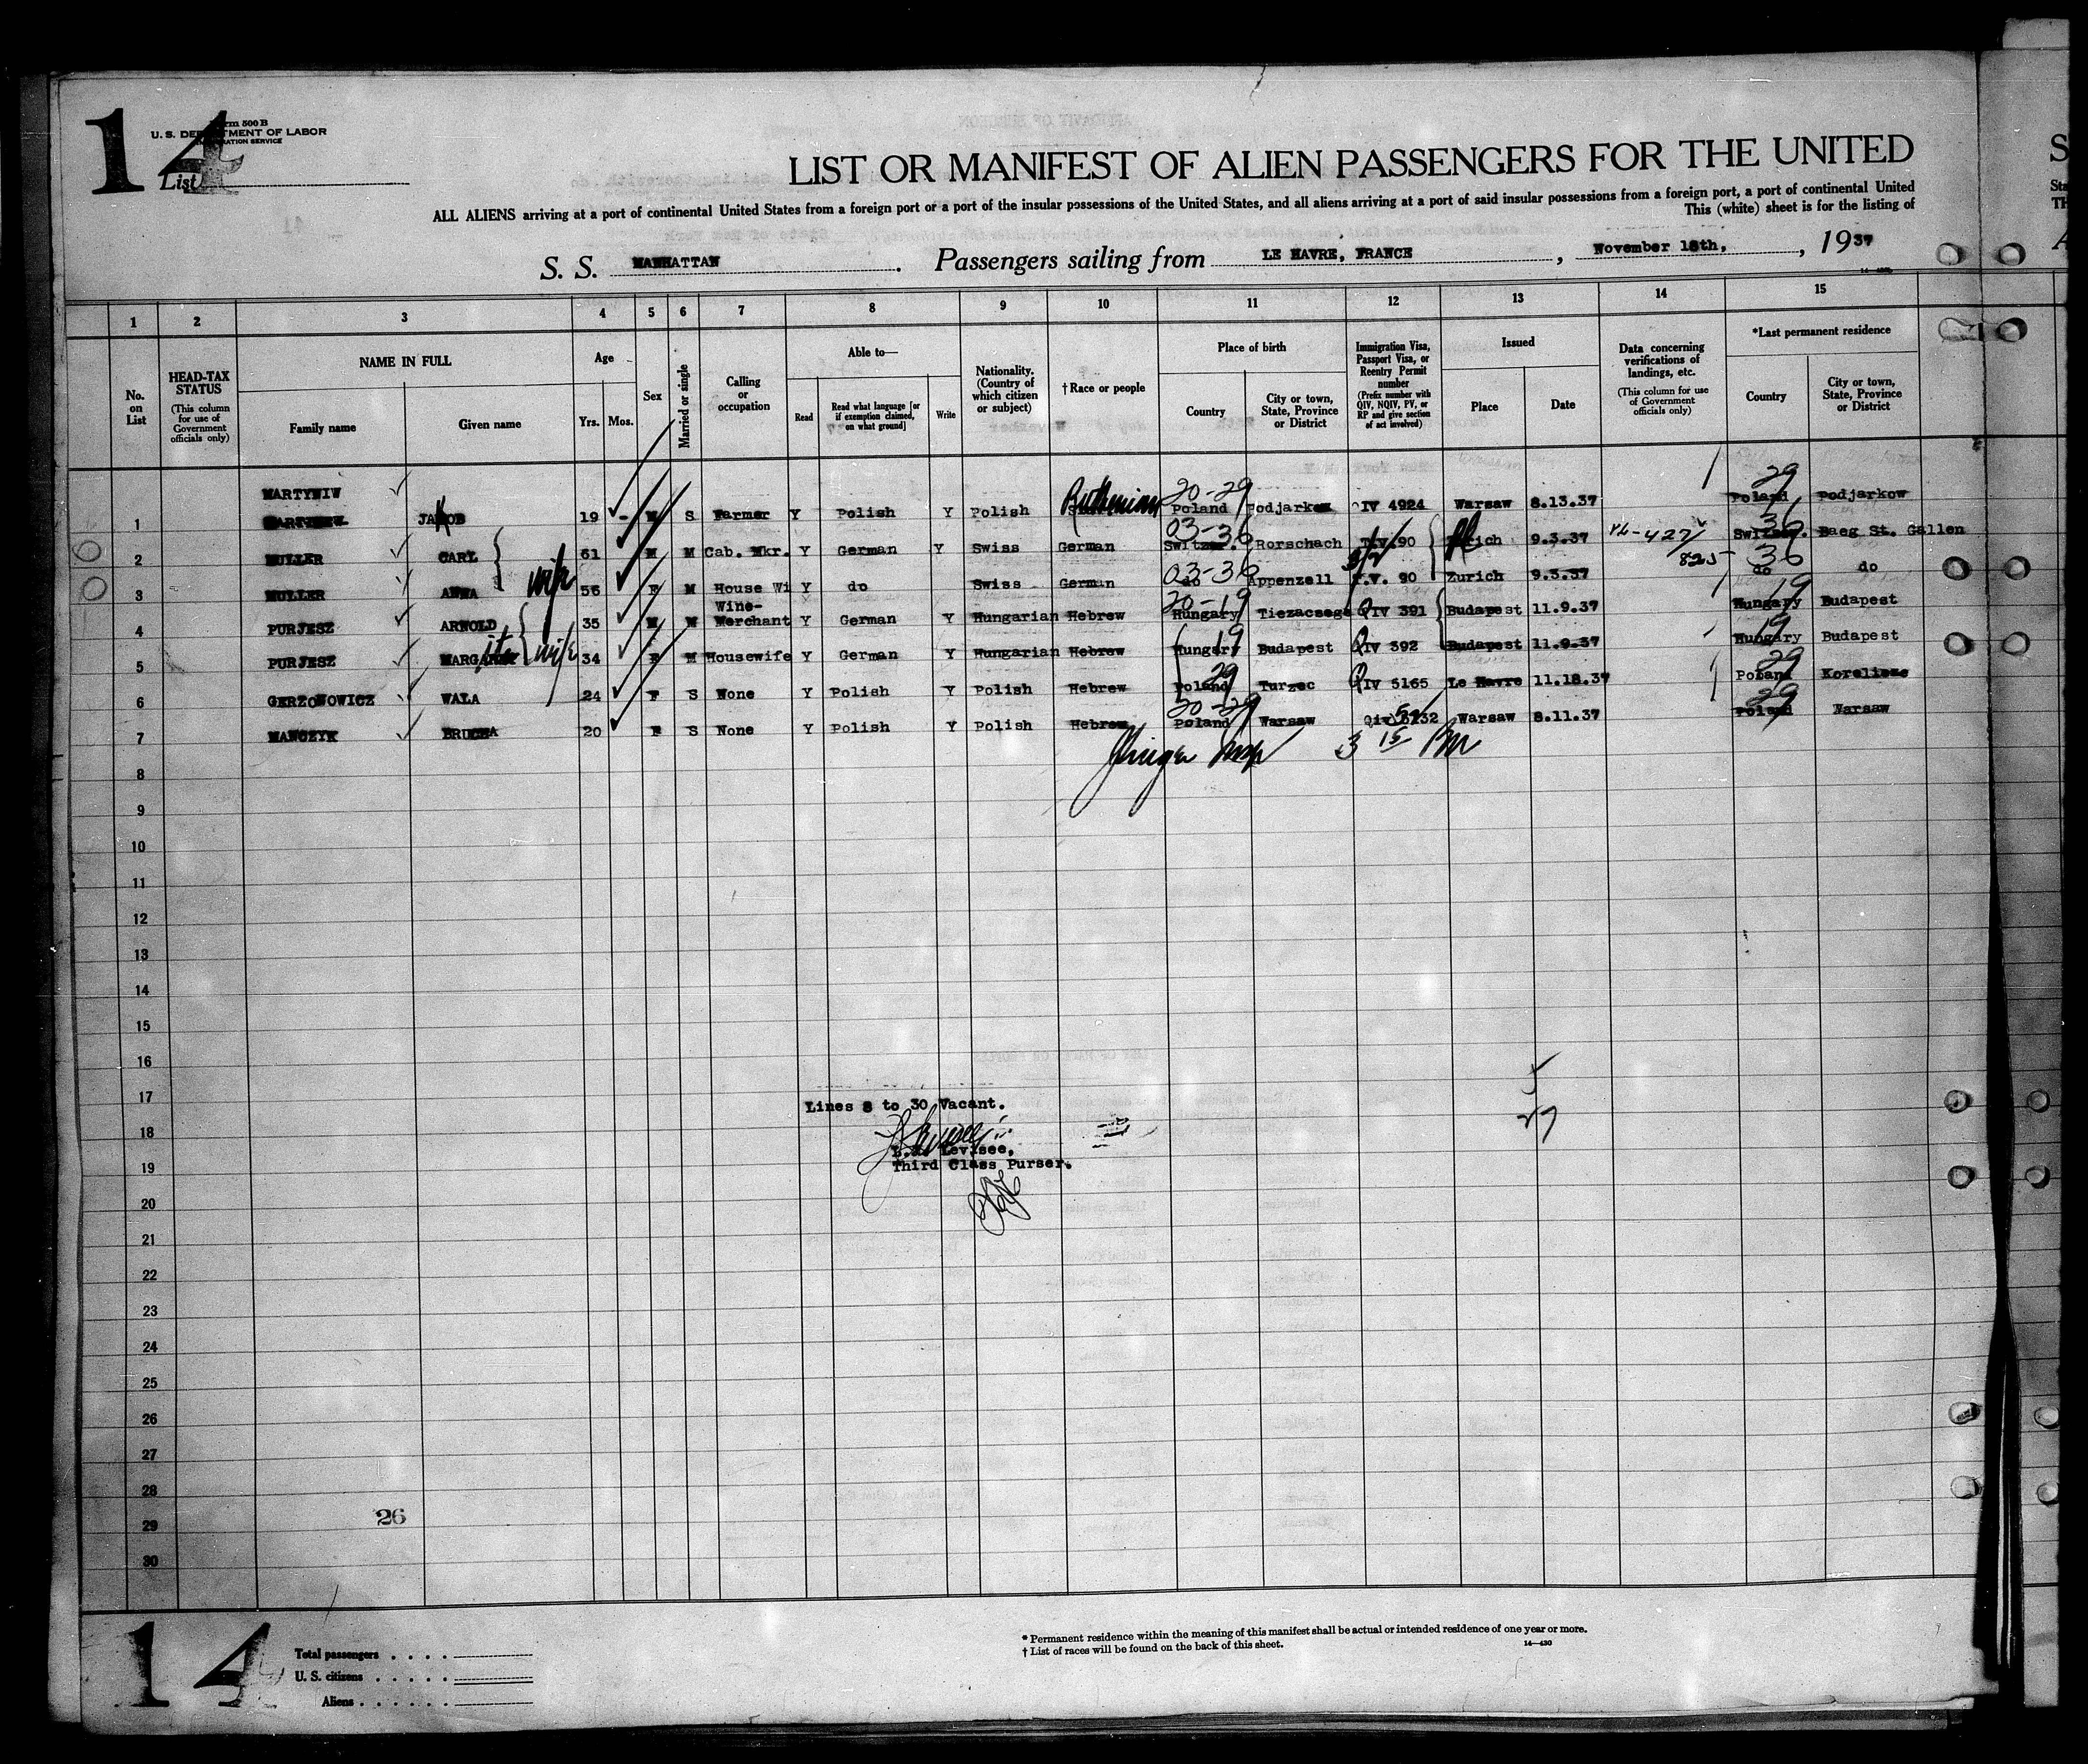 14
Form 500 B
U. S. DEPARTMENT OF LABOR
IMMIGRATION SERVICE
List
LIST OR MANIFEST OF ALIEN PASSENGERS FOR THE UNITED
ALL ALIENS arriving at a port of continental United States from a foreign port or a port of the insular possessions of the United States, and all aliens arriving at a port of said insular possessions from a foreign port, a port of continental United
This (white) sheet is for the listing of
S. S. MANHATTAN. Passengers sailing from LE HAVRE, FRANCE, November 18th, , 1937
1 2 3 4 5 6 7 8 9 10 11 12 13 14 15
No. on List
HEAD-TAX STATUS
(This column for use of Government officials only)
NAME IN FULL
Family name Given name
Age
Yrs. Mos.
Sex
Married or single
Calling or occupation
Able to—
Read Read what language [or if exemption claimed, on what ground] Write
Nationality. (Country of which citizen or subject)
†Race or people
Place of birth
Country City or town, State, Province or District
Immigration Visa, Passport Visa, or Reentry Permit number
(Prefix number with QIV, NQIV, PV, or RP and give section of act involved)
Issued
Place Date
Data concerning verifications of landings, etc.
(This column for use of Government officials only)
*Last permanent residence
Country City or town, State, Province or District
MARTYNIW 20-29 29
1 JAKOB 19 - M S Farmer Y Polish Y Polish Ruthenian Poland Podjarkow QIV 4924 Warsaw 8.13.37 Poland Podjarkow
03-36 36
2 MULLER CARL 61 M M Cab. Mkr. Y German Y Swiss German Switzer. Rorschach 90 Zurich 9.3.37 Switzer. Baeg St. Gallen
wife 03-36 825 36
3 MULLER ANNA 56 F M House Wi Y do Swiss German do Appenzell 90 Zurich 9.3.37 do do
Wine- 20-19 19
4 PURJESZ ARNOLD 35 M M Merchant Y German Y Hungarian Hebrew Hungary QIV 391 Budapest 11.9.37 Hungary Budapest
wife 19 19
5 PURJESZ 34 F M Housewife Y German Y Hungarian Hebrew Hungary Budapest QIV 392 Budapest 11.9.37 Hungary Budapest
29 29
6 GERZONOWICZ WALA 24 F S None Y Polish Y Polish Hebrew Poland Turzec QIV 5165 Le Havre 11.18.37 Poland
20-29 29
7 MANCZYK 20 F S None Y Polish Y Polish Hebrew Poland Warsaw Warsaw 8.11.37 Poland Warsaw
8
9
10
11
12
13
14
15
16
17
Lines 8 to 30 Vacant.
27
18
Levisee,
19
Third Class Purser.
20
21
22
23
24
25
26
27
28
26
29
30
14
Total passengers
U. S. citizens
Aliens
* Permanent residence within the meaning of this manifest shall be actual or intended residence of one year or more.
† List of races will be found on the back of this sheet.
14—430